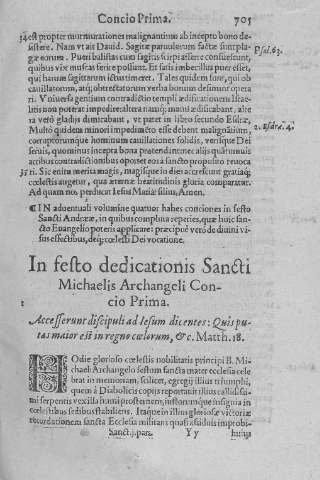 Concio Prima. 705
34 est propter murmurationes malignantium ab incepto bono de-
sistere. Nam vt ait Dauid. Sagittæ paruulorum factæ sunt pla-
gæ eorum. Pueri balistas cum sagittis scirpi assere consuescunt, Psal. 63.
quibus vix muscas ferire possunt. Et satis imbecillus puer esset,
qui harum sagittarum ictus timeret. Tales quidem sunt, qui ob
cauillatorum, atq; obtrectatorum verba bonum desinunt opera
ri. Vniuersa gentium contradictio templi ædificationem Israe-
litis non poterat impedire: altera namq; manu ædificabant, alte
ra verò gladijs dimicabant, vt patet in libro secundo Esdræ,
Multò quidem minori impedimento esse debent malignātium, 2. Esdræ. 4.
corruptorumque hominum cauillationes solidis, verisque Dei
seruis, quominus incepta bona prætendant: nec aliquis quātumuis
acribus contradictionibus oportet eos à sancto proposito reuoca
35 ri. Sic enim merita magis, magisque in dies accrescunt gratiaq;
cœlestis augetur, qua æternæ beatitudinis gloria comparatur.
Ad quam nos perducat Iesus Mariæ filius, Amen.
¶ IN aduentuali volumine quatuor habes conciones in festo
Sancti Andreæ, in quibus complura reperies, quæ huic san-
cto Euangelio poteris applicare: præcipuè verò de diuini vi-
sus effectibus, deq; cœlesti Dei vocatione.
In festo dedicationis Sancti
Michaelis Archangeli Con-
cio Prima.
Accesserunt discipuli ad Iesum dicentes: Quis pu-
tas maior est in regno cœlorum, &c. Matth. 18.
1
HOdie glorioso cœlestis nobilitatis principi B. Mi-
chaeli Archangelo festum sancta mater ecclesia cele
brat in memoriam, scilicet, egregij illius triumphi,
quem à Diabolicis copijs reportauit illius callidissi-
mi serpentis vexilla humi prosternens, iustorumque insignia in
cœlestibus sedibus stabiliens. Itaque in illius gloriosæ victoriæ
recordationem sancta Ecclesia militans quasi assiduis improbi-
Sanct. j. para. Y y huius